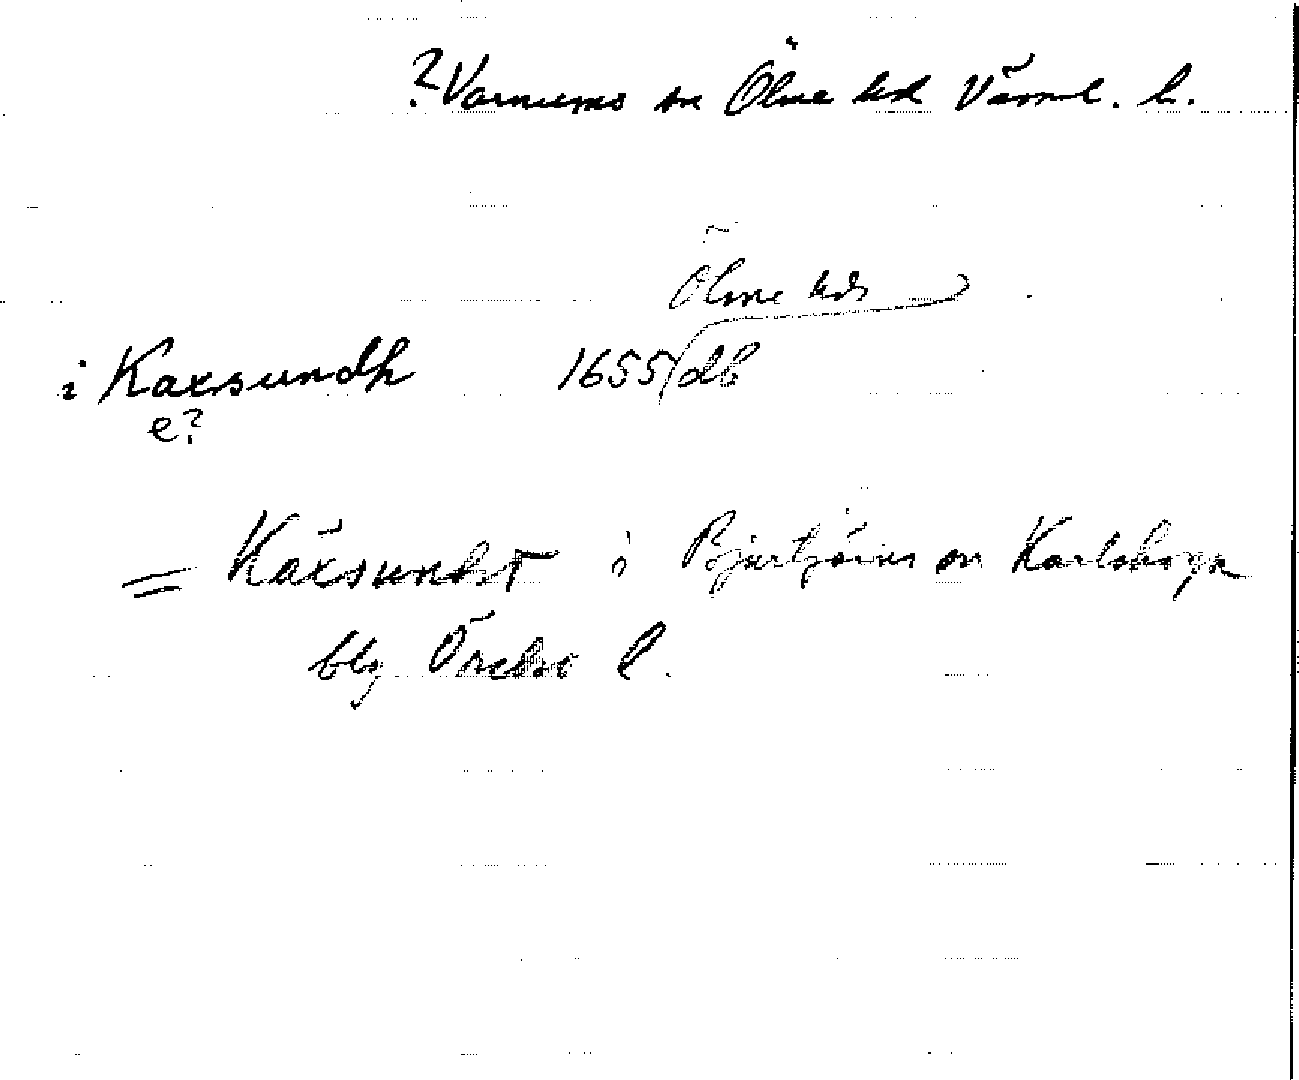 ?Varnums sn Ölme hd Värml. l.
Ölme hds
i Kaxsundh 1655 db
e?
= Käxsundet i Bjurtjärns sn Karlskoga
blg Örebro l.